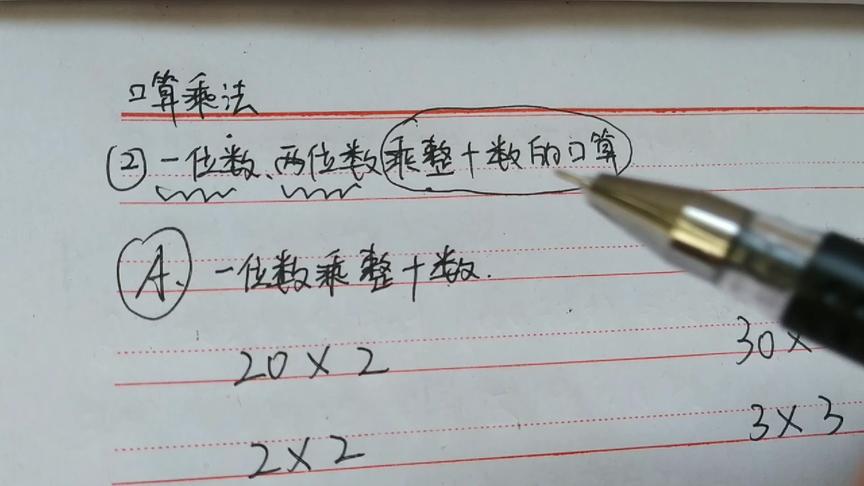 口算乘法
② 一位数、两位数乘整十数的口算
A. 一位数乘整十数.
20×2 30×
2×2 3×3